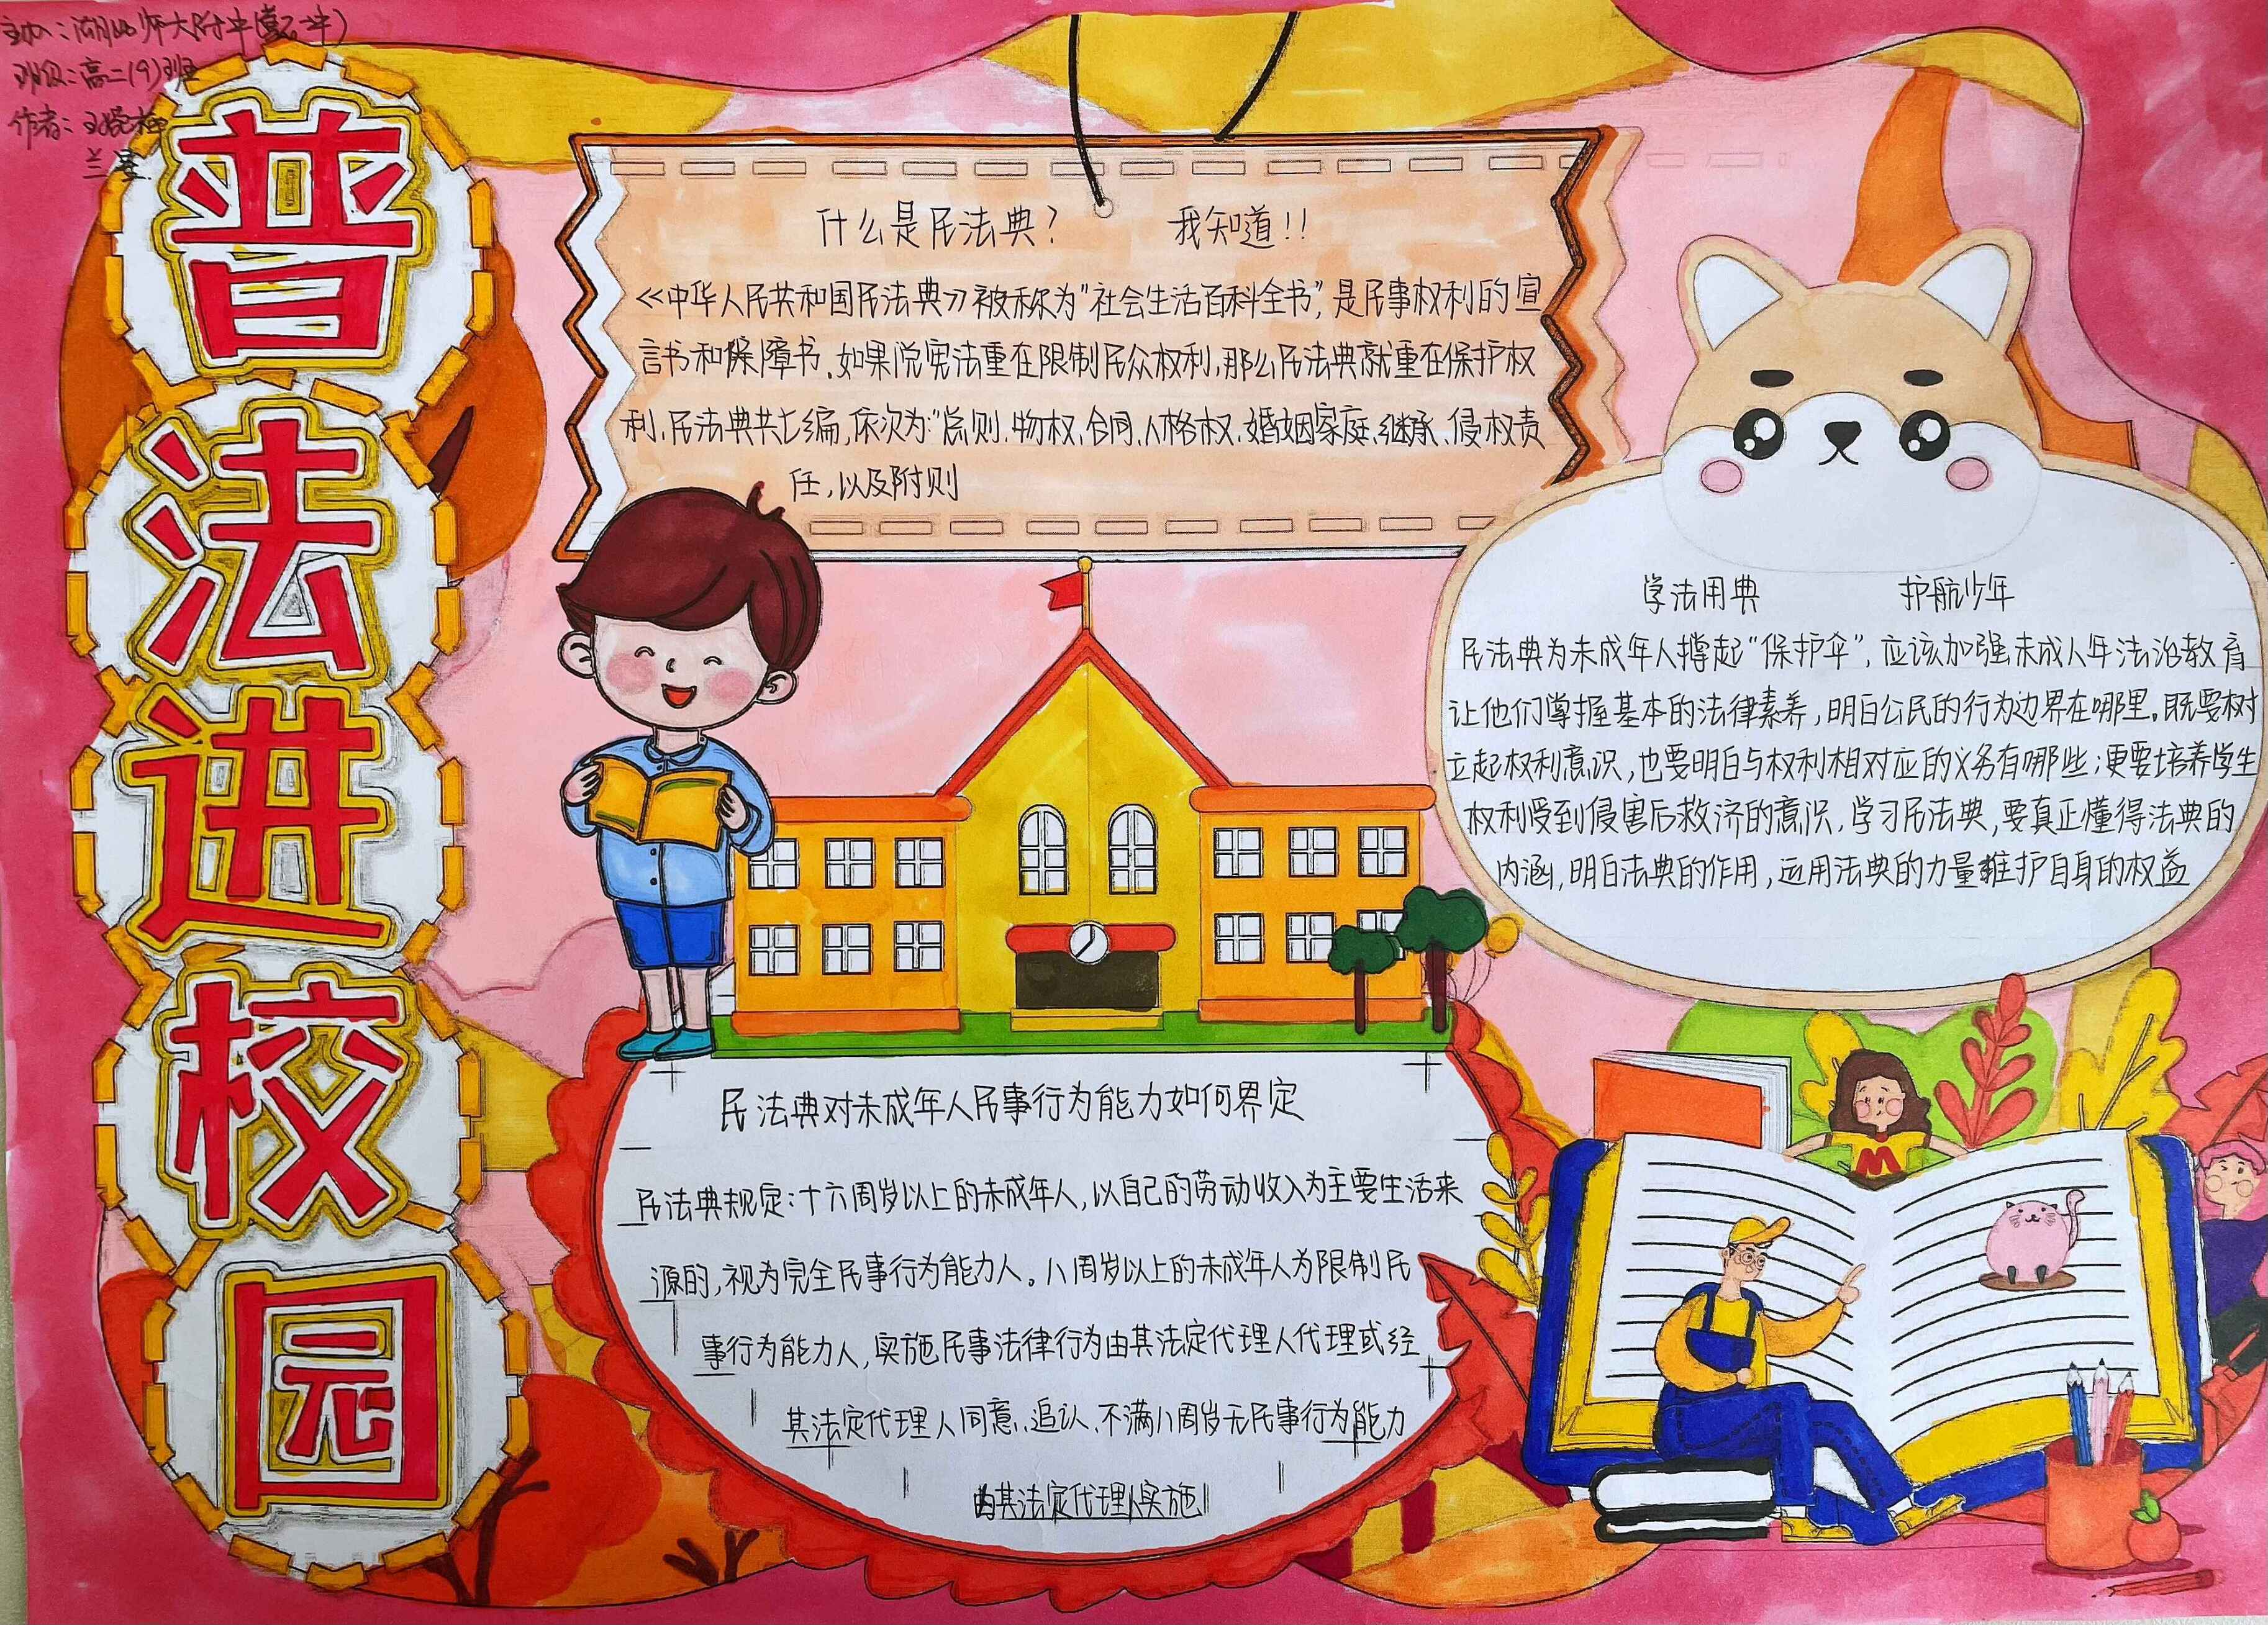 主办：湖北师大附中(黄石二中)
班级：高二(9)班
作者：
普法进校园
什么是民法典? 我知道!!
《中华人民共和国民法典》被称为"社会生活百科全书",是民事权利的宣
言书和保障书.如果说宪法重在限制民众权利,那么民法典就重在保护权
利.民法典共七编,依次为"总则.物权.合同.人格权.婚姻家庭.继承.侵权责
任,以及附则
学法用典 护航少年
民法典为未成年人撑起"保护伞",应该加强未成人年法治教育
让他们掌握基本的法律素养,明白公民的行为边界在哪里.既要树
立起权利意识,也要明白与权利相对应的义务有哪些;更要培养学生
权利受到侵害后救济的意识.学习民法典,要真正懂得法典的
内涵,明白法典的作用,运用法典的力量维护自身的权益
民法典对未成年人民事行为能力如何界定
民法典规定:十六周岁以上的未成年人,以自己的劳动收入为主要生活来
源的,视为完全民事行为能力人。八周岁以上的未成年人为限制民
事行为能力人,实施民事法律行为由其法定代理人代理或经
其法定代理人同意.追认.不满八周岁无民事行为能力
由其法定代理人实施
M